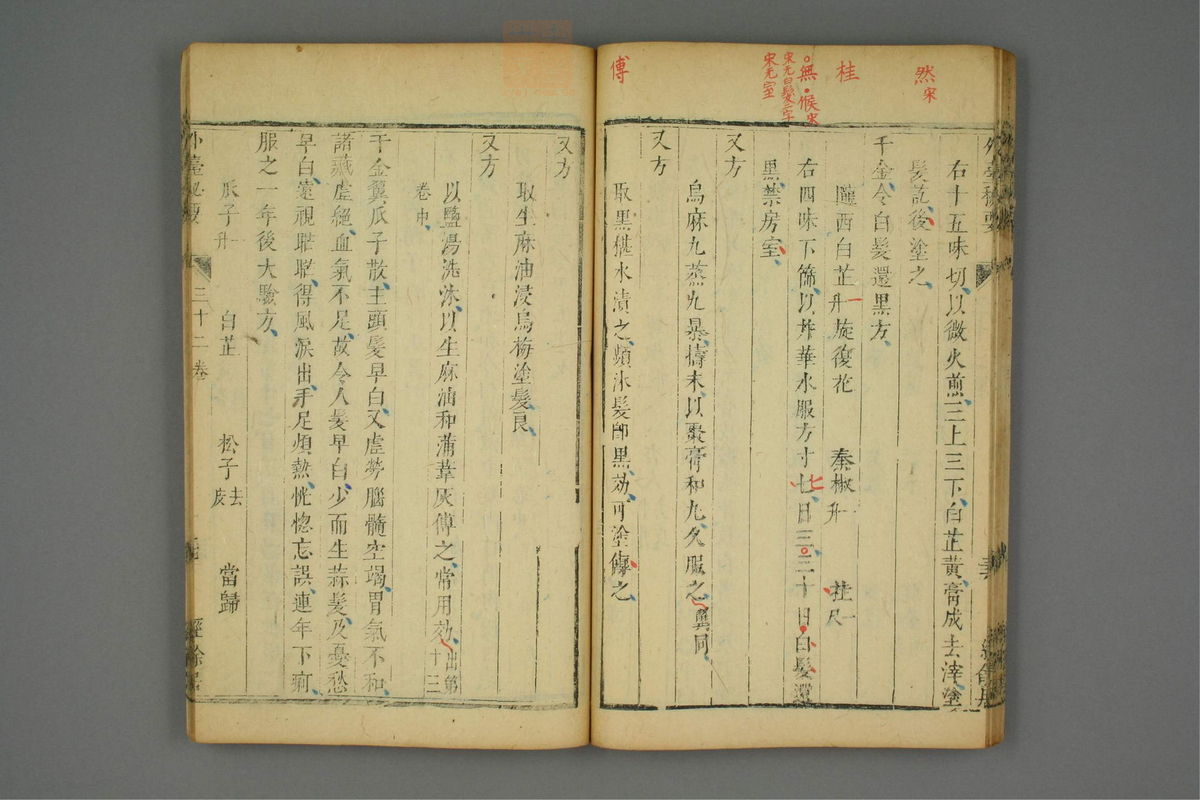 然 宋
桂
無 候 宋
宋元白髮二字
宋元室
傅
右十五味切以微火煎三上三下白芷黃膏成去滓塗
髮訖後塗之
千金令白髮還黑方
隴西白芷一升 旋復花 秦椒一升 桂一尺
右四味下篩以井華水服方寸七日三三十日白髮還
黑禁房室
又方
烏麻九蒸九暴擣末以棗膏和九久服之翼同
又方
取黑椹水漬之頻沐髮即黑効可塗傅之
又方
取生麻油浸烏梅塗髮良
又方
以鹽湯洗沐以生麻油和蒲葦灰傅之常用効出第十三
卷中
千金翼瓜子散主頭髮早白又虛勞腦髓空竭胃氣不和
諸藏虛絕血氣不足故令人髮早白少而生蒜髮及憂愁
早白遠視䀮䀮得風淚出手足煩熱恍惚忘誤連年下痢
服之一年後大驗方
瓜子一升 白芷 松子去皮 當歸
外臺秘要 三十二卷 經餘居